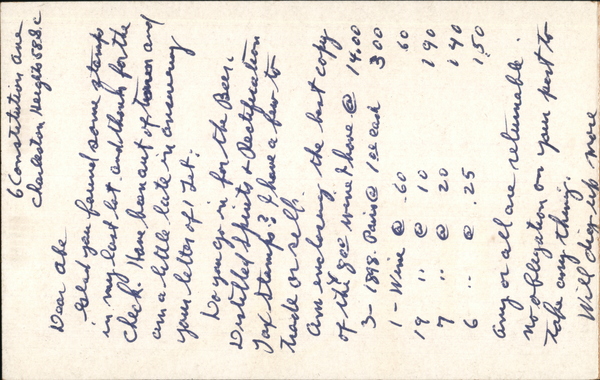 6 Constitution Ave
Charleston Heights 58 S.C
Dear Abe
Glad you found some stamps
in my last lot and thanks for the
check. Have been out of town and
am a little late in answering
your letter of 1 Set.
Do you go in for the Beer,
Distilled Spirits & Rectification
Tax Stamps? I have a few to
trade or sell.
Am enclosing the best copy
of the 80¢ wine I have @ 14.00
3 - 1898 Pairs @ 1.00 each 3.00
1 - Wine @ .60 60
19 " @ 10 190
7 " @ 20 140
6 " @ .25 1.50
Any or all are returnable.
No obligation on your part to
take anything.
Will dig up more